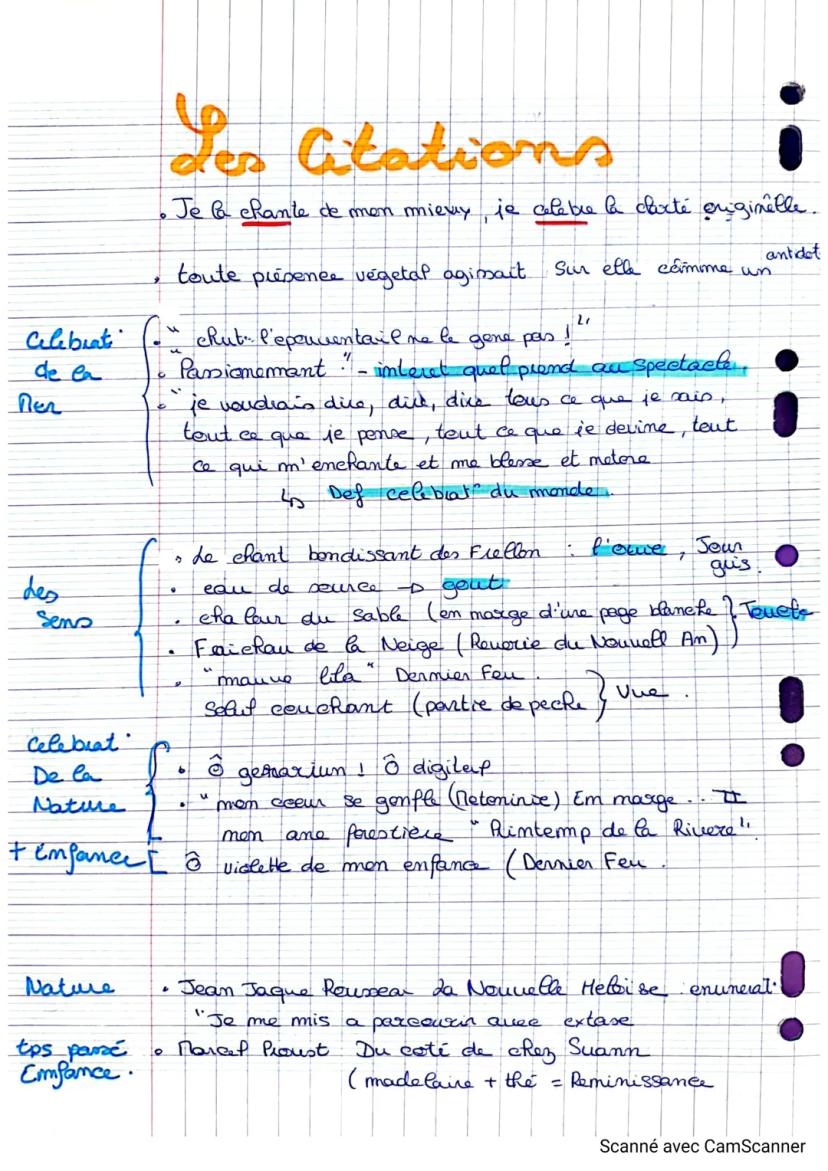 Les Citations
• Je la chante de mon mieux, je celebre la clarté originêlle.
• toute présence végetal agissait sur elle cômme un antidot
Celebrat°
de la
Mer
• " chut.. l'epouventail ne le gene pas ! "
• " Passionemment " - interet quel prend au spectacle.
• " je voudrais dire, dire, dire tous ce que je sais,
tout ce que je pense, tout ce que je devine, tout
ce qui m'enchante et me blesse et metone
↳ Def celebrat° du monde.
Les
Sens
• Le chant bondissant des Frellon : l'ouie, Jour gris.
• eau de source → gout
• chaleur du sable (en marge d'une page blanche } Touche
• Fraicheau de la Neige (Reverie du Nouvell An)
• "mauve lila" Dernier Feu.
Soluf couchant (partie de peche } Vue.
Celebrat°
De la
Nature
• Ô geranium ! Ô digital
• " mon coeur se gonfle (Metonimie) Em marge... II
mon ame forestière " Printemp de la Rivere ".
+ Emfance [ Ô violette de mon enfance (Dernier Feu.
Nature • Jean Jaque Rousseau La Nouvelle Heloise enumerat°
"Je me mis a parcourir avec extase
tps passé • Marcel Proust Du coté de chez Suann
Emfance. (madelaine + thé = Reminissance
Scanné avec CamScanner